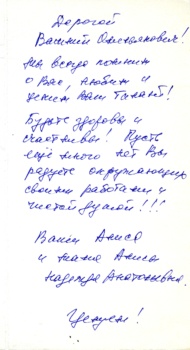 Дорогой
Василий Омельянович!
Мы всегда помним
о Вас, любим и
ценим Ваш талант!
Будьте здоровы и
счастливы! Пусть
ещё много лет Вы
радуете окружающих
своими работами и
чистой душой!!!
Ваши Алиса
и мама Алисы
Надежда Анатольевна.
Целуем!